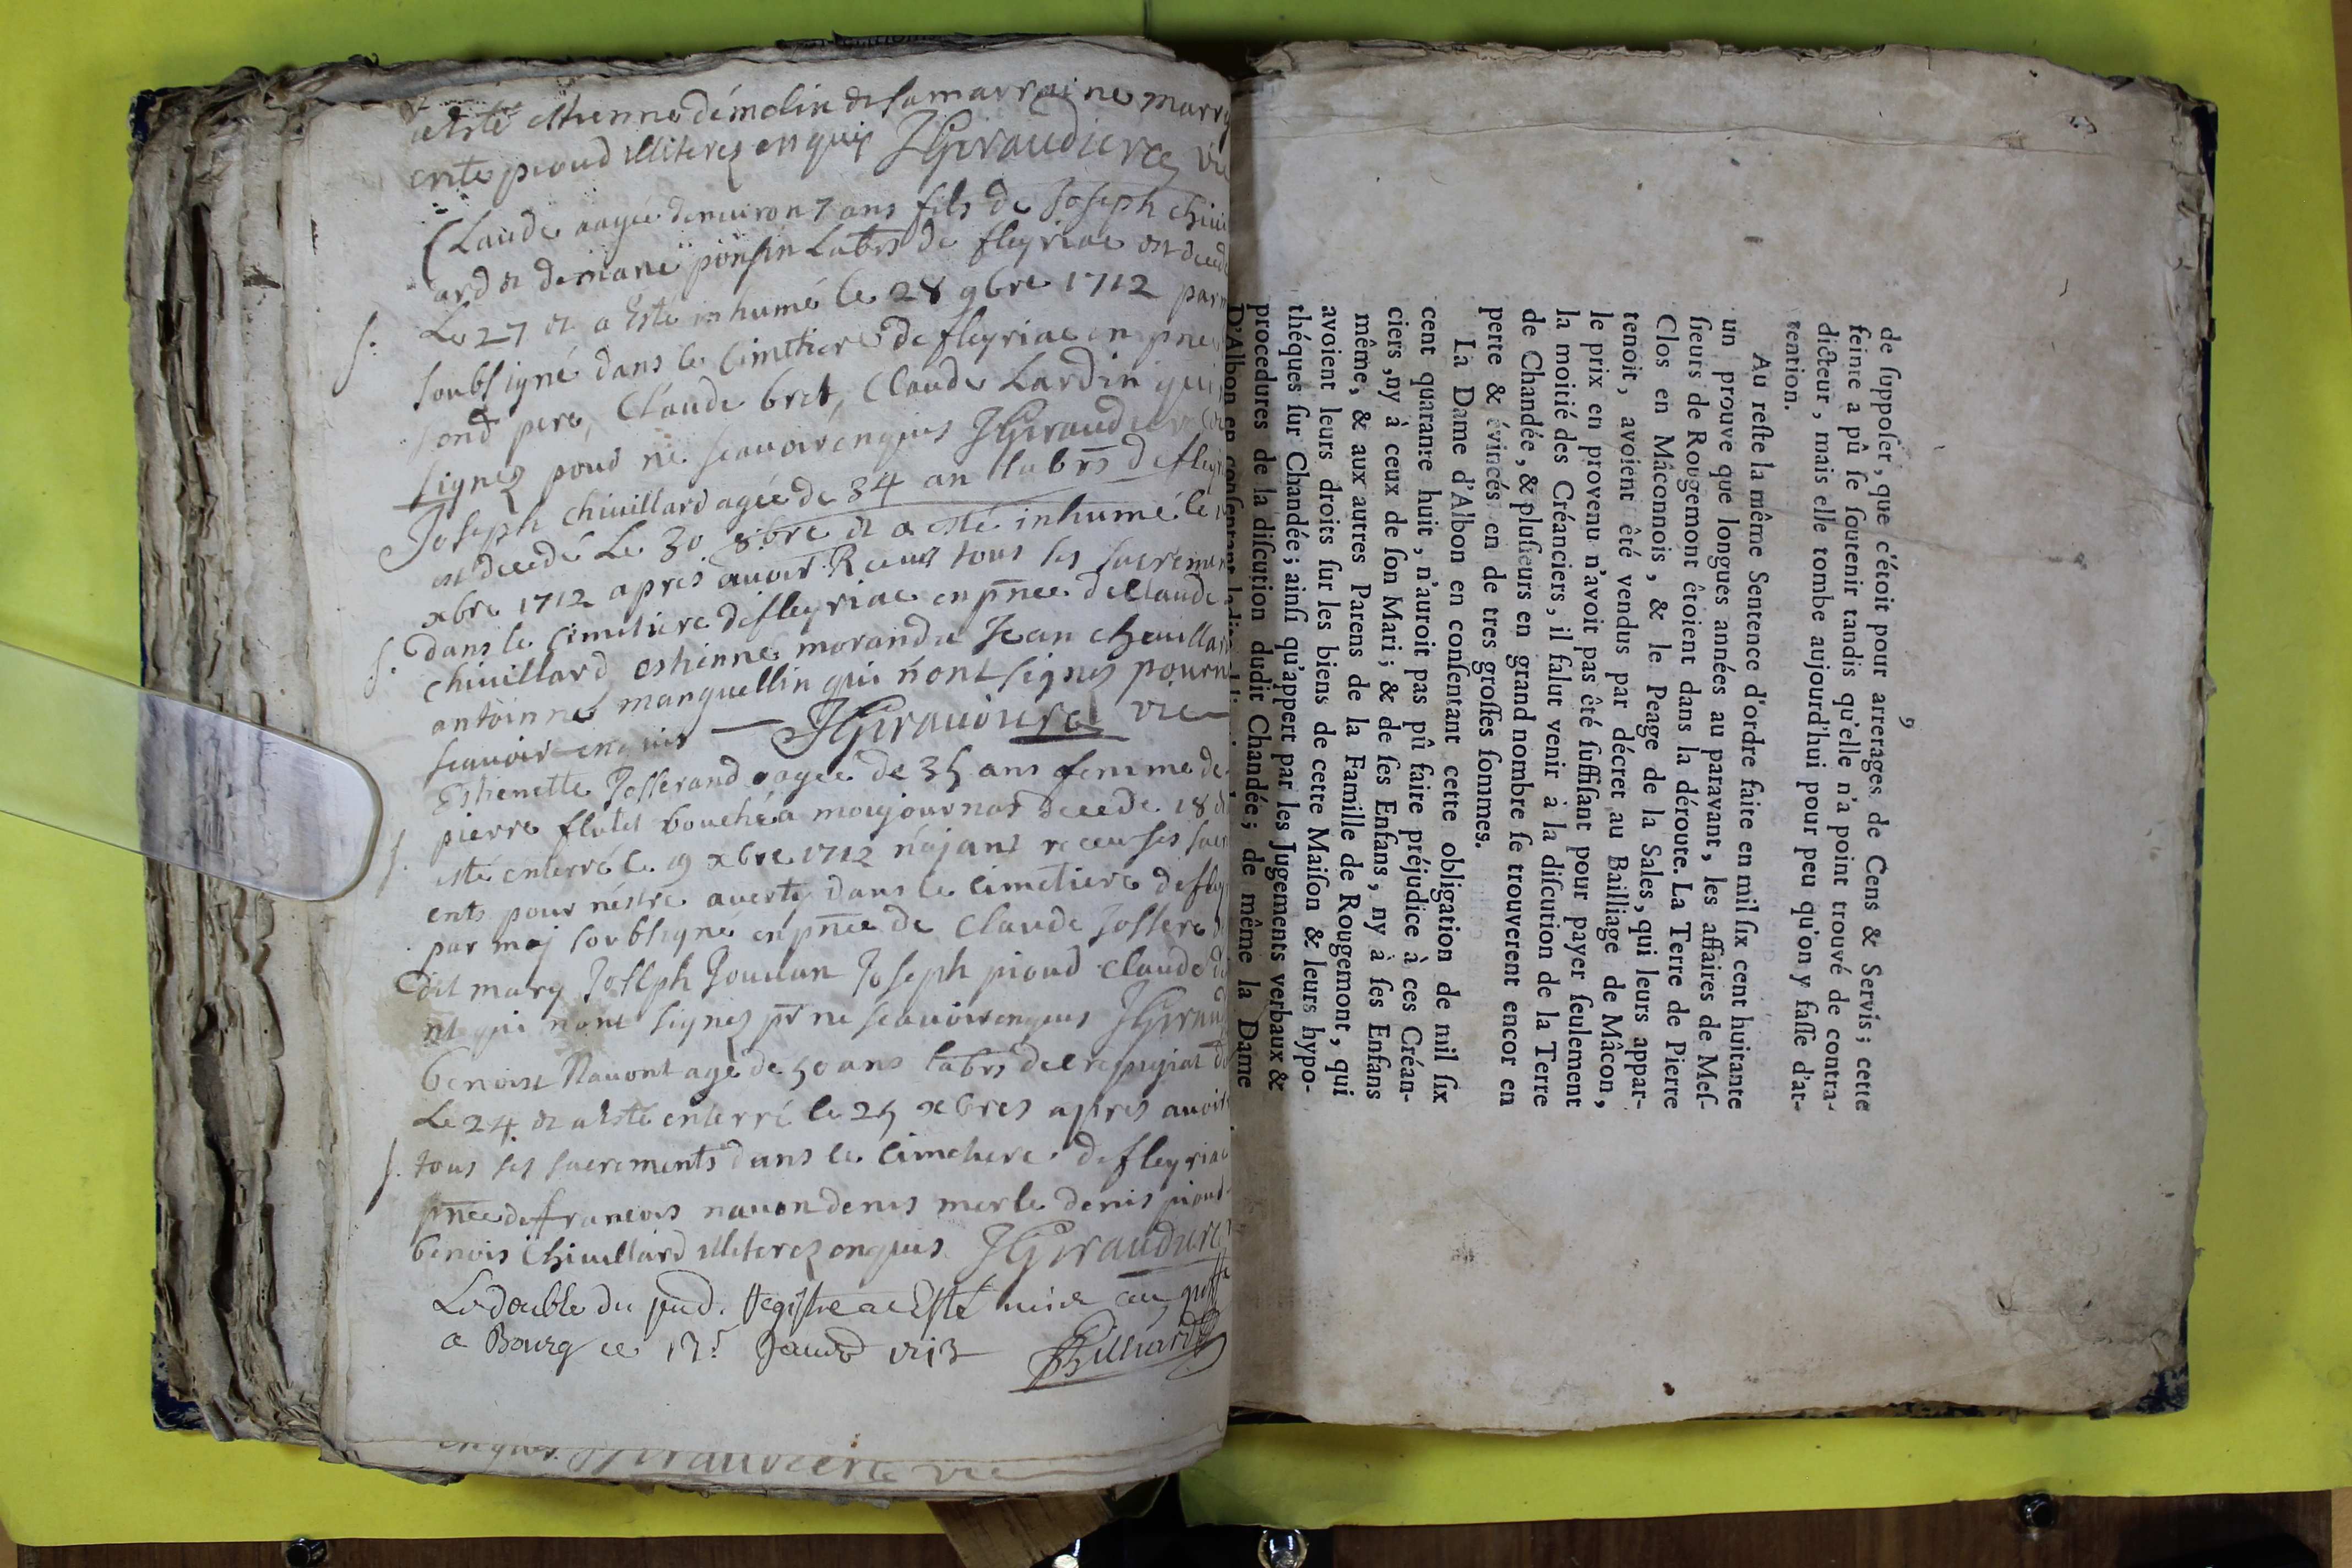 a esté estienne démolin et sa marraine marr
ente pioud illiterez enquis JGiraudiere vic
Claude aagée denuiron 7 ans fils de Joseph chiui
ard et demarie ponsin Labrs de fleyriac est deced
Le 27 et a Esté inhumé le 28 9bre 1712 par m
soubsigné dans le Cimetiere de fleyriac en pne
sond pere, Claude bret, Claude Lardin qui
signez pour ne scauoir enquis JGiraudiere
Joseph chiuillard agée de 34 an labrs de fley
est decedé Le 30 9bre et a esté inhumé le
xbre 1712 apres auoir Receus tous les sacremen
S. dans le Cimetiere de fleyriac en pnce de Claude
chiuillard estienne morandu Jean chiuillar
antoinne manguellin qui n'ont signes pour n
scauoir enquis JGiraudiere vic
Estienette Josserand aagee de 35 ans femme de
pierre flutet bouché a monjournat decede 18 et
S. esté enterré le 19 xbre 1712 n'ajant receu ses sacr
ents pour néstre auerty dans le cimetiere de fley
par moj soubsigné en pnce de Claude Jossera
dit mary Joseph Joudan Joseph pioud Claude
nt qui nont signez pr ne scauoir enquis JGiraud
benoist Nauont agé de 50 ans labrs de crepignat
Le 24 et a Esté enterré le 25 xbres apres auoir
S. tous ses sacrements dans le cimetiere de fleyriac
pnce de francois nauon denis merle denis pioud
benois Chiuillard illiterez enquis JGiraudiere
Le double du pnd. Registre a Esté mis au greff
a Bourg ce 13e Januier 1713 Billiard
enquis JGiraudiere vic
9
de supposer, que c'étoit pour arrerages de Cens & Servis; cette
feinte a pû se soutenir tandis qu'elle n'a point trouvé de contra-
dicteur, mais elle tombe aujourd'hui pour peu qu'on y fasse d'at-
tention.
Au reste la même Sentence d'ordre faite en mil six cent huitante
un prouve que longues années au paravant, les affaires de Mes-
sieurs de Rougemont étoient dans la déroute. La Terre de Pierre
Clos en Mâconnois, & le Peage de la Sales, qui leurs appar-
tenoit, avoient êté vendus par décret au Bailliage de Mâcon,
le prix en provenu n'avoit pas êté suffisant pour payer seulement
la moitié des Créanciers, il falut venir à la discution de la Terre
de Chandée, & plusieurs en grand nombre se trouverent encor en
perte & évincés en de tres grosses sommes.
La Dame d'Albon en consentant cette obligation de mil six
cent quarante huit, n'auroit pas pû faire préjudice à ces Créan-
ciers, ny à ceux de son Mari; & de ses Enfans, ny à ses Enfans
même, & aux autres Parens de la Famille de Rougemont, qui
avoient leurs droits sur les biens de cette Maison & leurs hypo-
théques sur Chandée; ainsi qu'appert par les Jugements verbaux &
procedures de la discution dudit Chandée; de même la Dame
D'Albon en consentant